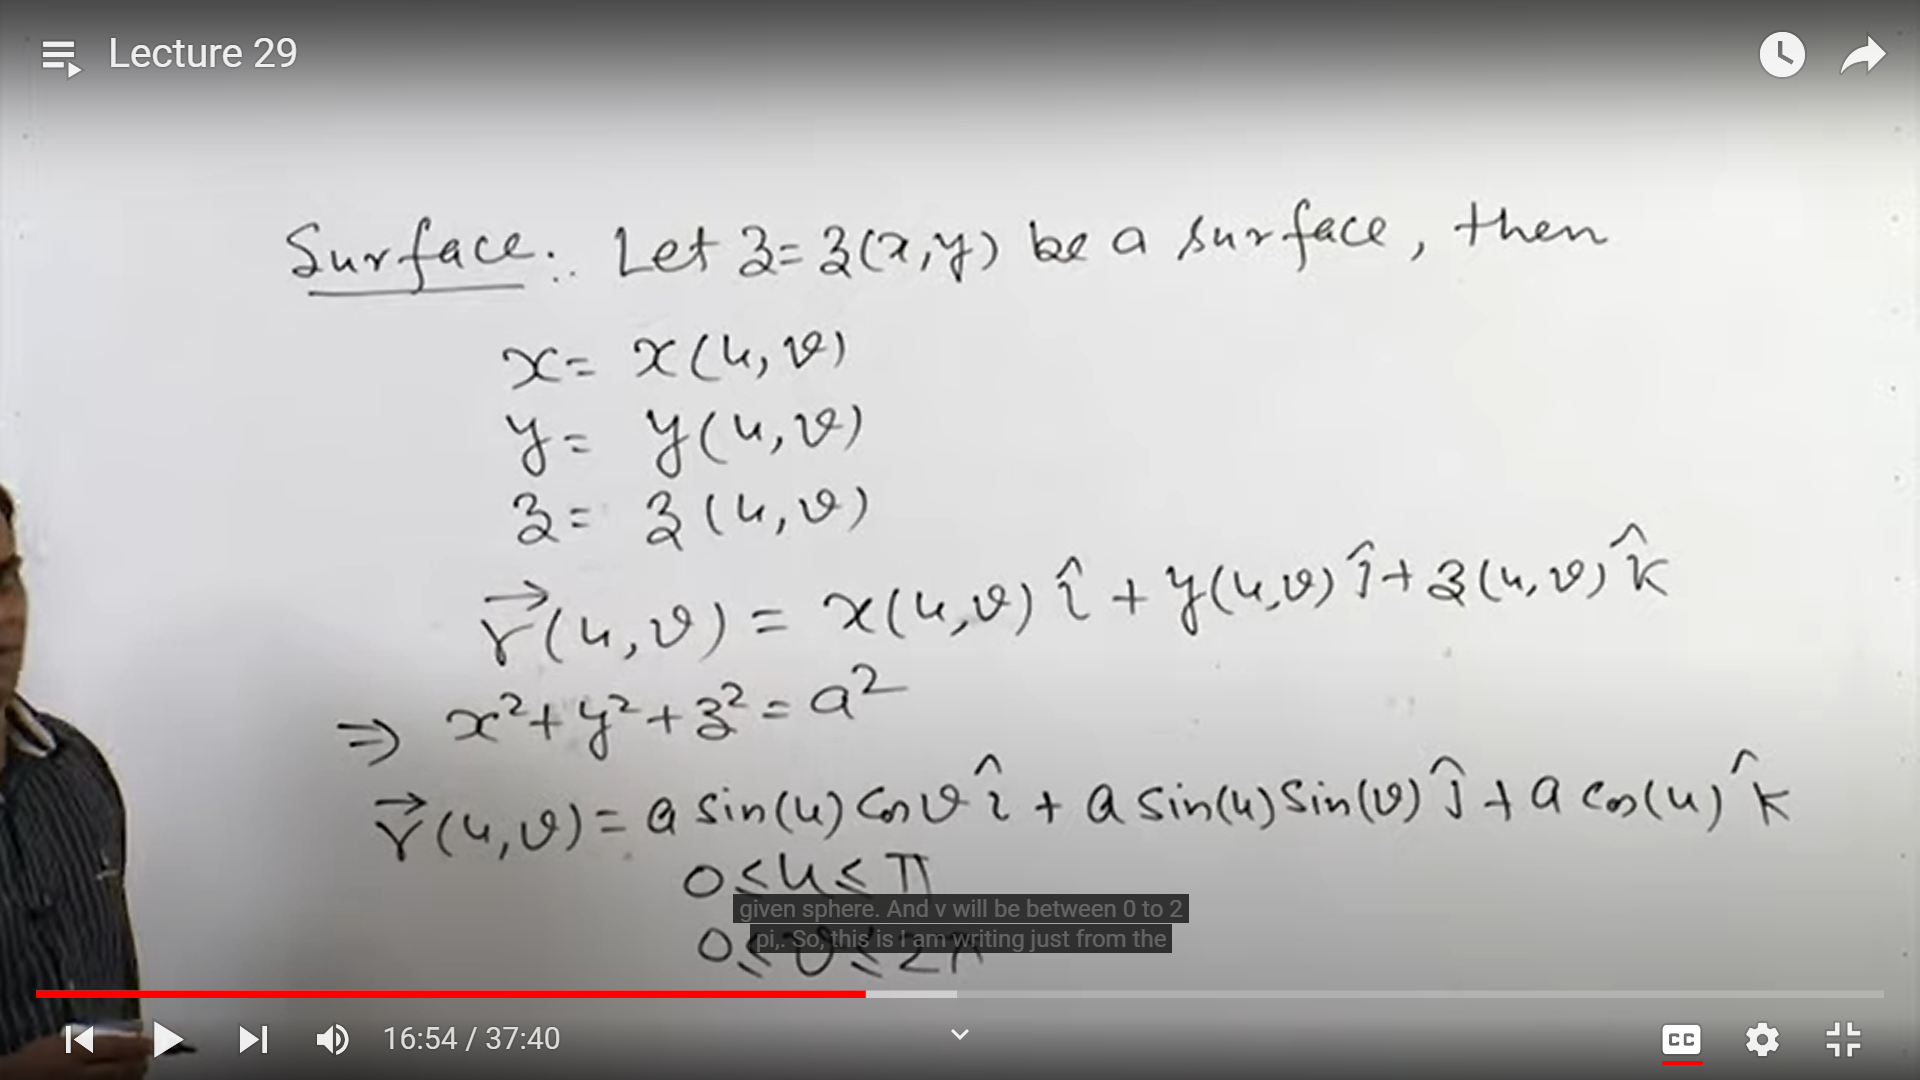 Lecture 29
Surface:. Let z=z(x,y) be a surface, then
x= x(u,v)
y= y(u,v)
z= z(u,v)
r⃗(u,v) = x(u,v) î + y(u,v) ĵ + z(u,v) k̂
⇒ x²+y²+z²=a²
r⃗(u,v)= a sin(u) cos v î + a sin(u) sin(v) ĵ + a cos(u) k̂
0≤u≤π
given sphere. And v will be between 0 to 2
pi,. So, this is I am writing just from the
0≤v≤2π
16:54 / 37:40
CC